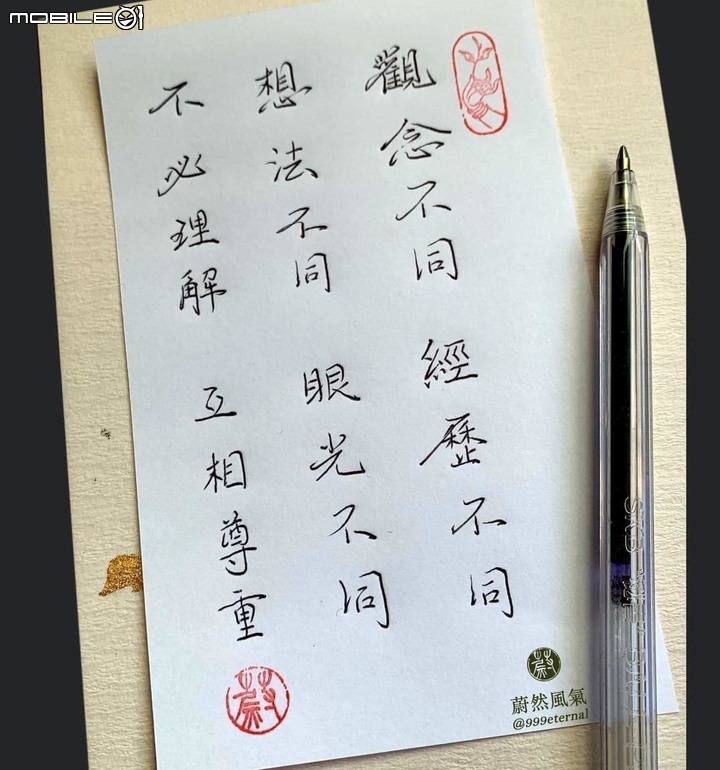 MOBILE01
觀念不同 經歷不同
想法不同 眼光不同
不必理解 互相尊重
蔚
蔚
蔚然風氣
@999eternal
SKB